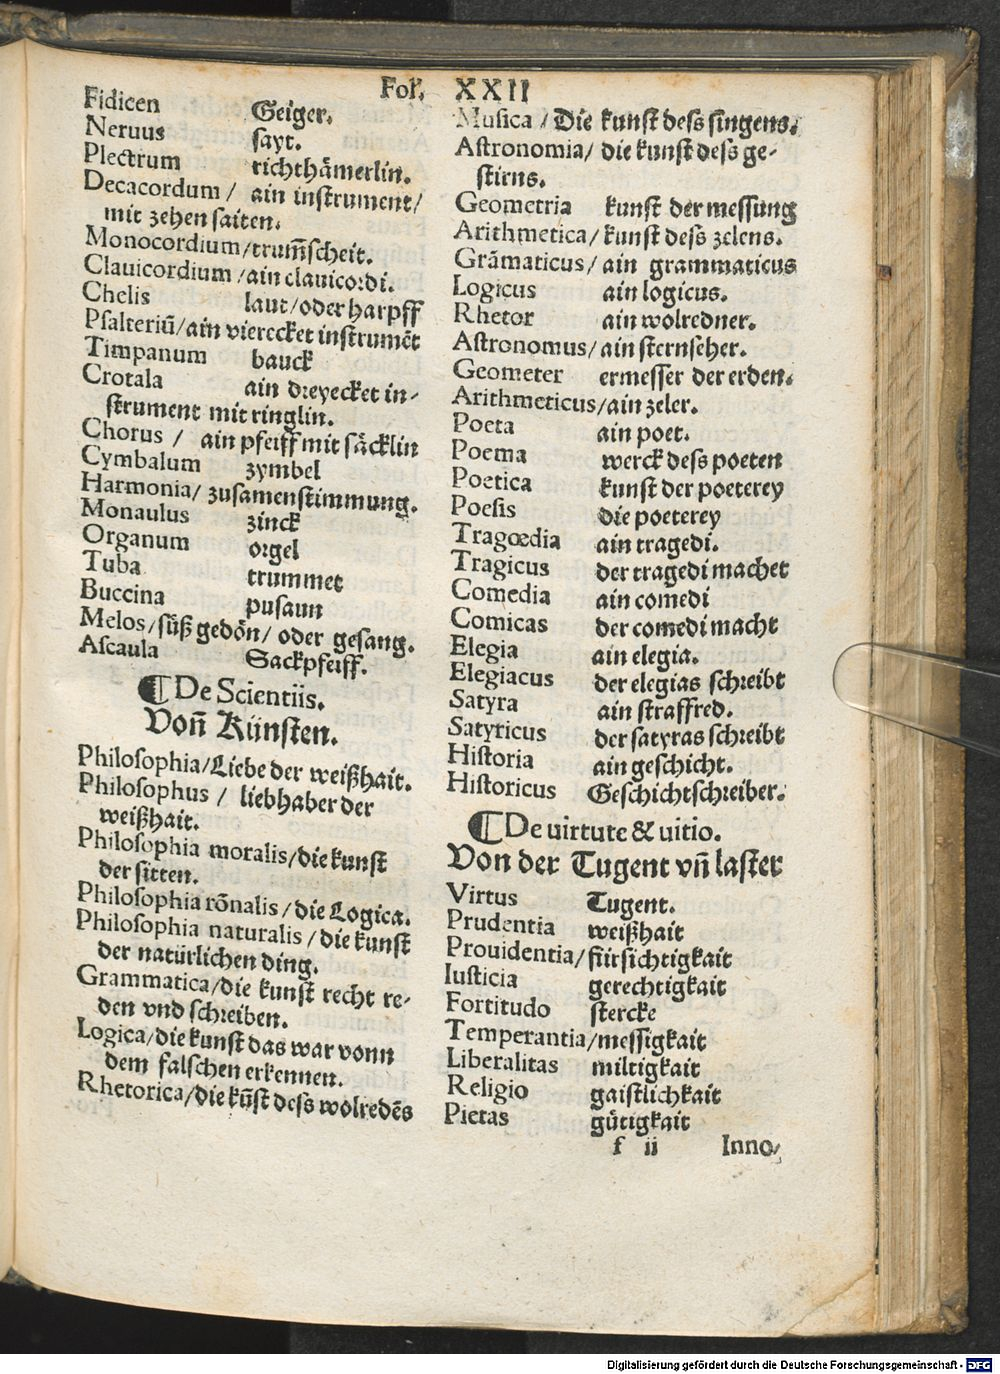 Fol. XXII
Fidicen Geiger.
Neruus sayt.
Plectrum richthämerlin.
Decacordum / ain instrument/
mit zehen saiten.
Monocordium/trum̄scheit.
Clauicordium /ain clauicordi.
Chelis laut/oder harpff
Psalteriū/ain vierecket instrumēt
Timpanum bauck
Crotala ain dreyecket in-
strument mit ringlin.
Chorus / ain pfeiff mit säcklin
Cymbalum zymbel
Harmonia/ zusamenstimmung.
Monaulus zinck
Organum orgel
Tuba trummet
Buccina pusaun
Melos/süß gedön/ oder gesang.
Ascaula Sackpfeiff.
¶De Scientiis.
Von̄ Künsten.
Philosophia/Liebe der weißhait.
Philosophus / liebhaber der
weißhait.
Philosophia moralis/die kunst
der sitten.
Philosophia rōnalis /die Logica.
Philosophia naturalis /die kunst
der natürlichen ding.
Grammatica/die kunst recht re-
den vnd schreiben.
Logica/die kunst das war vonn
dem falschen erkennen.
Rhetorica/die kūst dess wolredēs
Musica / Die kunst dess singens.
Astronomia/ die kunst dess ge-
stirns.
Geometria kunst der messung
Arithmetica/ kunst dess zelens.
Grāmaticus/ ain grammaticus
Logicus ain logicus.
Rhetor ain wolredner.
Astronomus/ ain sternseher.
Geometer ermesser der erden.
Arithmeticus/ain zeler.
Poeta ain poet.
Poema werck dess poeten
Poetica kunst der poeterey
Poesis die poeterey
Tragœdia ain tragedi.
Tragicus der tragedi machet
Comedia ain comedi
Comicas der comedi macht
Elegia ain elegia.
Elegiacus der elegias schreibt
Satyra ain straffred.
Satyricus der satyras schreibt
Historia ain geschicht.
Historicus Geschichtschreiber.
¶De uirtute & uitio.
Von der Tugent vn̄ laster
Virtus Tugent.
Prudentia weißhait
Prouidentia/ fürsichtigkait
Iusticia gerechtigkait
Fortitudo stercke
Temperantia/messigkait
Liberalitas miltigkait
Religio gaistlichkait
Pietas gütigkait
f ii Inno/
Digitalisierung gefördert durch die Deutsche Forschungsgemeinschaft - DFG